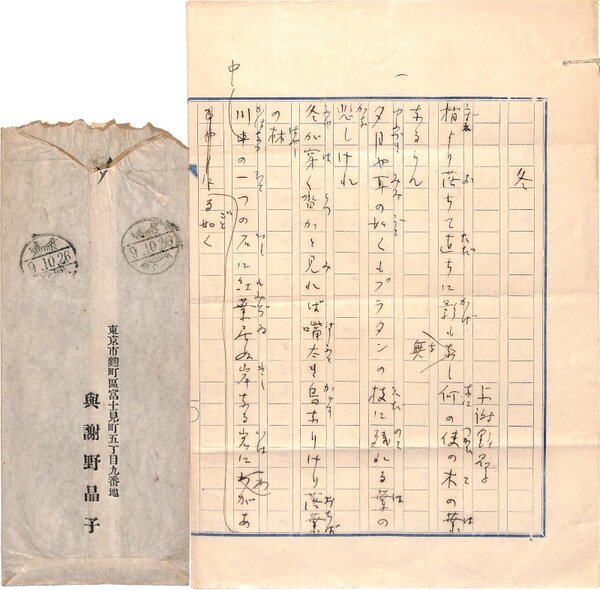 一
冬
与謝野晶子
梢より落ちて直ちに影もなし何の使の木の葉
無き
なるらん
夕月や耳の如くもプラタンの枝に残れる葉の
悲しけれ
冬が穿く沓かと見れば嘴太き烏ありけり落葉
の林
川中の一つの石に紅葉居ぬ岸なる岩にわがあ
る如く
9.10.26
9.10.26
東京市麹町區富士見町五丁目九番地
與謝野晶子